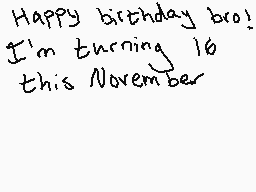 Happy birthday bro!
I'm turning 16
this November